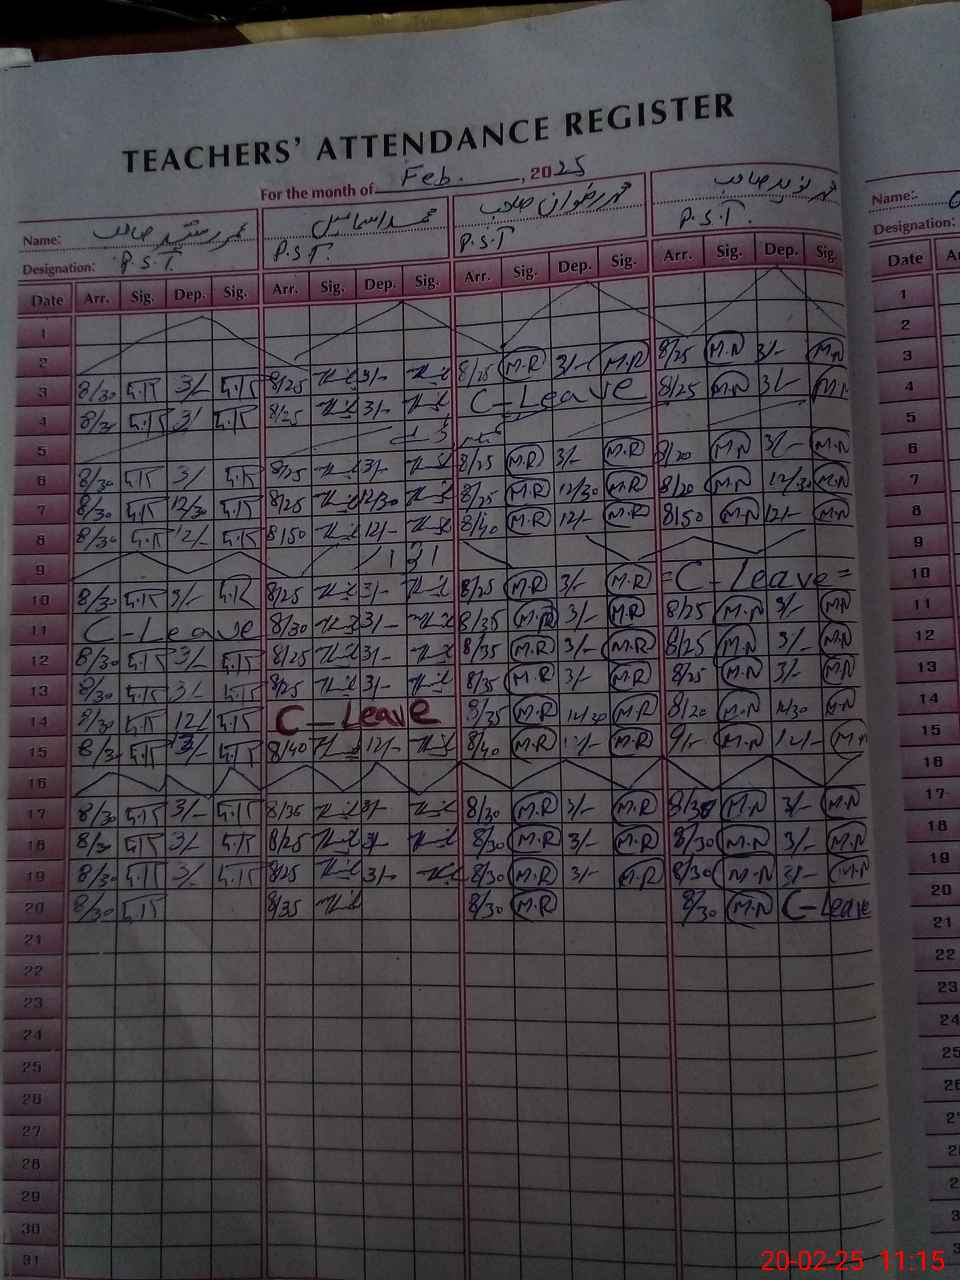 TEACHERS' ATTENDANCE REGISTER
For the month of Feb. , 2025
Name: محمد رشید صاحب محمد اسماعیل محمد رضوان صاحب محمد نوید صاحب
Designation: P.S.T. P.S.T. P.S.T P.S.T.
Date Arr. Sig. Dep. Sig. Arr. Sig. Dep. Sig. Arr. Sig. Dep. Sig. Arr. Sig. Dep. Sig.
1
2
3 8/30 3/- 8/25 3/- 8/25 M.R 3/- M.R 8/25 M.N 3/- M.N
4 8/30 3/ 8/25 3/- C-Leave 8/25 M.N 3/- M.N
5
6 8/30 3/ 8/25 3/- 8/25 M.R 3/- M.R 8/20 M.N 3/- M.N
7 8/30 12/30 8/25 12/30 8/25 M.R 12/30 M.R 8/20 M.N 12/30 M.N
8 8/30 12/- 8/50 12/- 8/40 M.R 12/- M.R 8/50 M.N 12/- M.N
9
10 8/30 3/- 8/25 3/- 8/25 M.R 3/- M.R =C-Leave=
11 C-Leave 8/30 3/- 8/35 M.R 3/- M.R 8/25 M.N 3/- M.N
12 8/30 3/- 8/25 3/- 8/35 M.R 3/- M.R 8/25 M.N 3/- M.N
13 8/30 3/- 8/25 3/- 8/35 M.R 3/- M.R 8/25 M.N 3/- M.N
14 8/30 12/ C-Leave 8/35 M.R 12/30 M.R 8/20 M.N 12/30 M.N
15 8/30 3/- 8/40 12/- 8/40 M.R 12/- M.R 9/- M.N 12/- M.N
16
17 8/30 3/- 8/35 3/- 8/30 M.R 3/- M.R 8/30 M.N 3/- M.N
18 8/30 3/- 8/25 3/- 8/30 M.R 3/- M.R 8/30 M.N 3/- M.N
19 8/30 3/- 8/25 3/- 8/30 M.R 3/- M.R 8/30 M.N 3/- M.N
20 8/30 8/35 8/30 M.R 8/30 M.N C-Leave
21
22
23
24
25
26
27
28
29
30
31
Name:
Designation:
Date
1
2
3
4
5
6
7
8
9
10
11
12
13
14
15
16
17
18
19
20
21
22
23
24
25
26
20-02-25 11:15